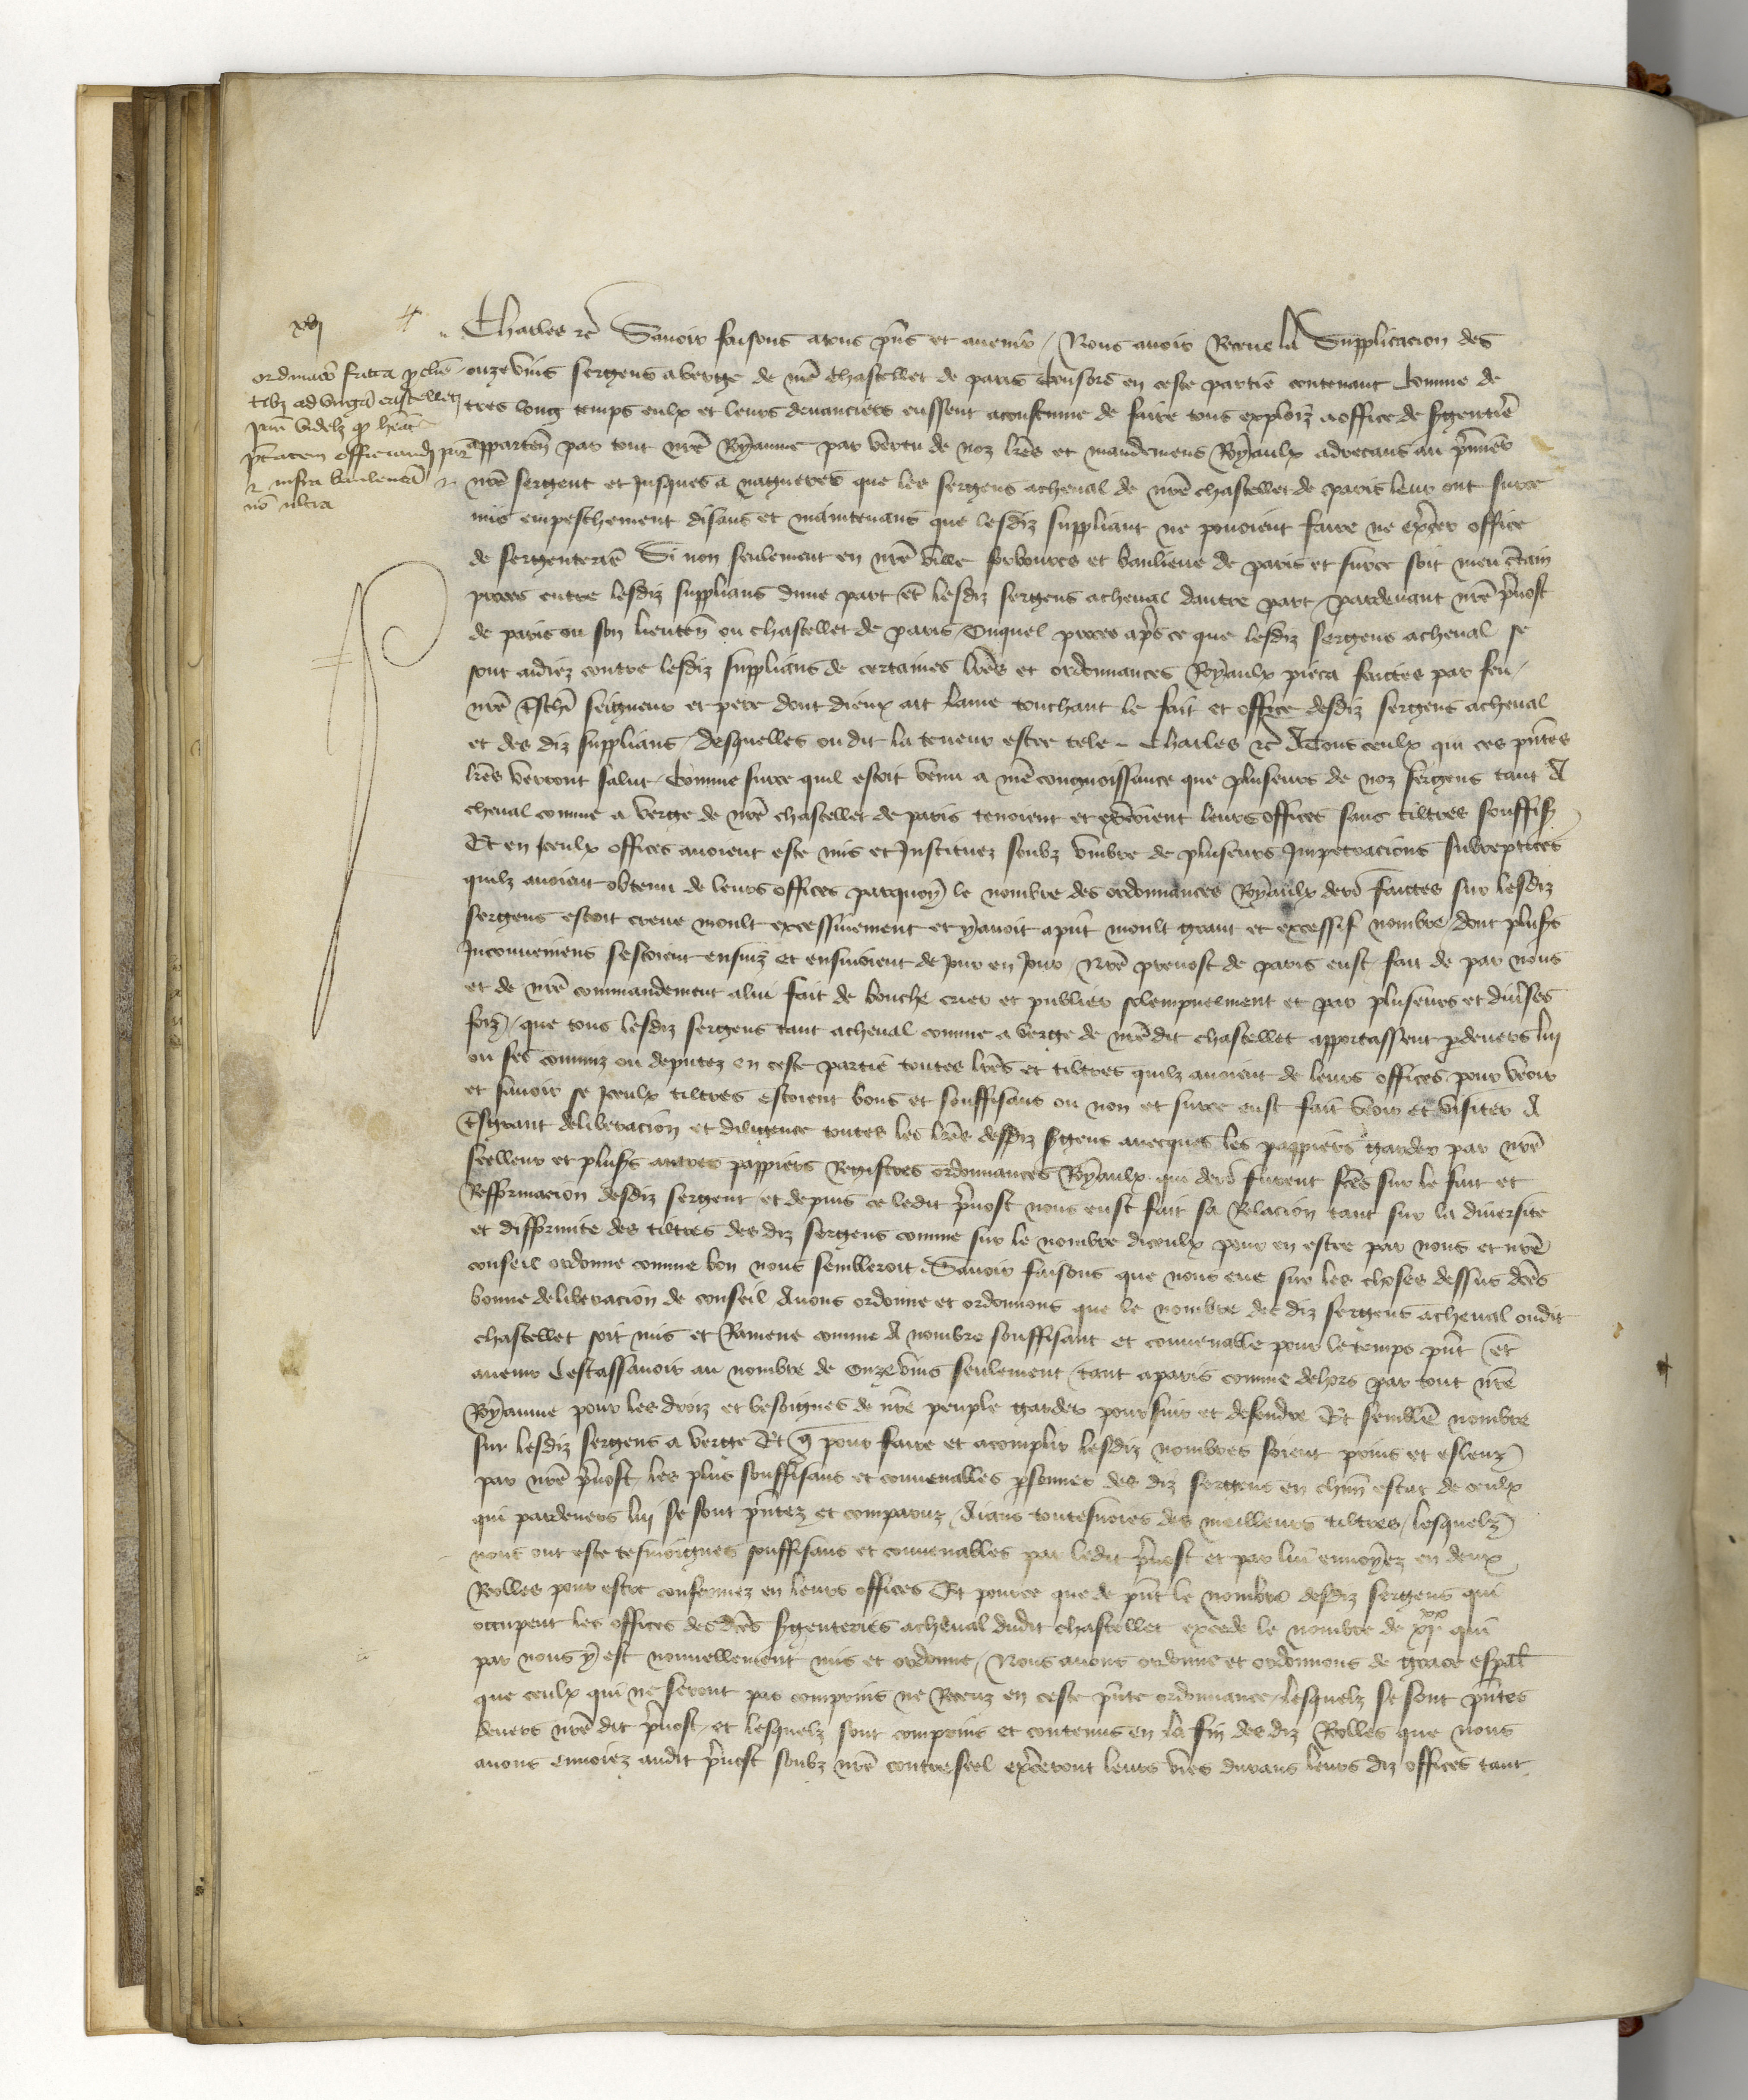 xvj
ordinacio facta pro clien
tibz ad virgam castelleti
parisius videlicet quod habeant
potestatem officiandi parisius
et infra banleucam et
non ultra
Charles etc Savoir faisons a tous pñs et avenir / Nous avoir Receue la Supplicacion des
onze vins sergens a verge de nrẽ Chastellet de paris Consors en ceste partie contenant Comme de
tres long temps eulx et leurs devanciers eussent acoustume de faire tous exploiz a office de sgenterie
apparteñ par tout nrẽ Royaume par vertu de noz lrẽs et mandemens Royaulx adrecans au premier
nrẽ sergent et Jusques a nagueres que les sergens a cheval de nrẽ chastellet de paris leur ont sur ce
mis empeschement disans et maintenans que lesdiz suppliant ne pouoient faire ne exercer office
de sergenterie Si non seulement en nrẽ ville forbours et banlieue de paris et sur ce soit meu certain
proces entre lesdiz supplians dune part Et lesdiz sergens a cheval dautre part / pardevant nrẽ prevost
de paris ou son lieuteñ ou chastellet de paris / Ouquel proces apres ce que lesdiz sergens a cheval se
sont aidiez contre lesdiz supplians de certaines lrẽs et ordonnances Royaulx pieca faictes par feu
nrẽ treschier seigneur et pere dont dieux ait lame touchant le fait et office desdiz sergens a cheval
et des diz supplians / desquelles on dit la teneur estre tele - Charles etc A Tous ceulx qui ces pñtes
lrẽs verront salut / Comme sur ce quil estoit venu a nrẽ congnoissance que pluseurs de noz sergens tant A
cheval comme a verge de nrẽ chastellet de paris tenoient et excercoient leurs offices sans tiltres souffisz
Et en Iceulx offices avoient este mis et Instituez soubz umbre de pluseurs Impetracions subreptices
quilz avoient obtenu de leurs offices parquoy le nombre des ordonnances Royaulx sur ce faictes sur lesdiz
sergens estoit creue moult excessivement et y avoit a pñt moult grant et excessif nombre / dont plusrs
Inconveniens sestoient ensuiz et ensuivoient de Jour en Jour / Nrẽ prevost de paris eust fait de par nous
et de nrẽ commandement a lui fait de bouche crier et publier solempnelment et par pluseurs et diverses
foiz / que tous lesdiz sergens tant a cheval comme a verge de nrẽdit chastellet apportassent pardevers lui
ou ses commiz ou deputez en ceste partie toutes lrẽs et tiltres quilz avoient de leurs offices pour veoir
et savoir se Iceulx tiltres estoient bons et souffisans ou non et sur ce eust fait veoir et visiter A
tresgrant deliberacion et diligence toutes les lrẽs desdiz sgens avecques les pappiers gardez par nrẽ
seelleur et plusrs autres pappiers Registres ordonnances Royaulx qui furent fcẽs sur le fait et
Refformacion desdiz sergent et depuis ce ledit prevost nous eust fait sa Relacion tant sur la diversite
et difformite des tiltres des diz sergens comme sur le nombre diceulx pour en estre par nous et nrẽ
conseil ordonne comme bon nous sembleroit . Savoir faisons que nous eue sur les choses dessus dcẽs
bonne deliberacion de conseil Avons ordonne et ordonnons que le nombre des diz sergens a cheval oudit
chastellet soit mis et Ramene comme A nombre souffisant et convenable pour le temps pñt Et
avenir Cestassavoir au nombre de Onze vins seulement / tant a paris comme dehors par tout nrẽ
Royaume pour les droiz et besoignes de nrẽ peuple garder poursuir et defendre Et semblẽ nombre
sur lesdiz sergens a verge Et q pour faire et acomplir lesdiz nombres soient prins et esleuz
par nrẽ prevost les plus souffisans et convenables psonnes des diz sergens en chũn estat de ceulx
qui pardevers lui se sont pñtez et comparuz / Aians toutesvoies des meilleurs tiltres / lesquelz
nous ont este tesmoignes souffisans et convenables par ledit prevost et par lui envoyez en deux
Rolles pour estre confermez en leurs offices Et pource que de pñt le nombre desdiz sergens qui
occupent les offices des dcẽs sgenteries a cheval dudit chastellet excede le nombre de xjxx qui
par nous y est nouvellement mis et ordonne / Nous avons ordonne et ordonnons de grace espãl
que ceulx qui ne seront pas comprins ne Receuz en ceste pñte ordonnance / lesquelz se sont pñtes
devers nrẽ dit prevost / et lesquelz sont comprins et contenus en la fin des diz Rolles que nous
avons envoiez audit prevost soubz nrẽ contreseel exerceront leurs vies durans leurs diz offices tant